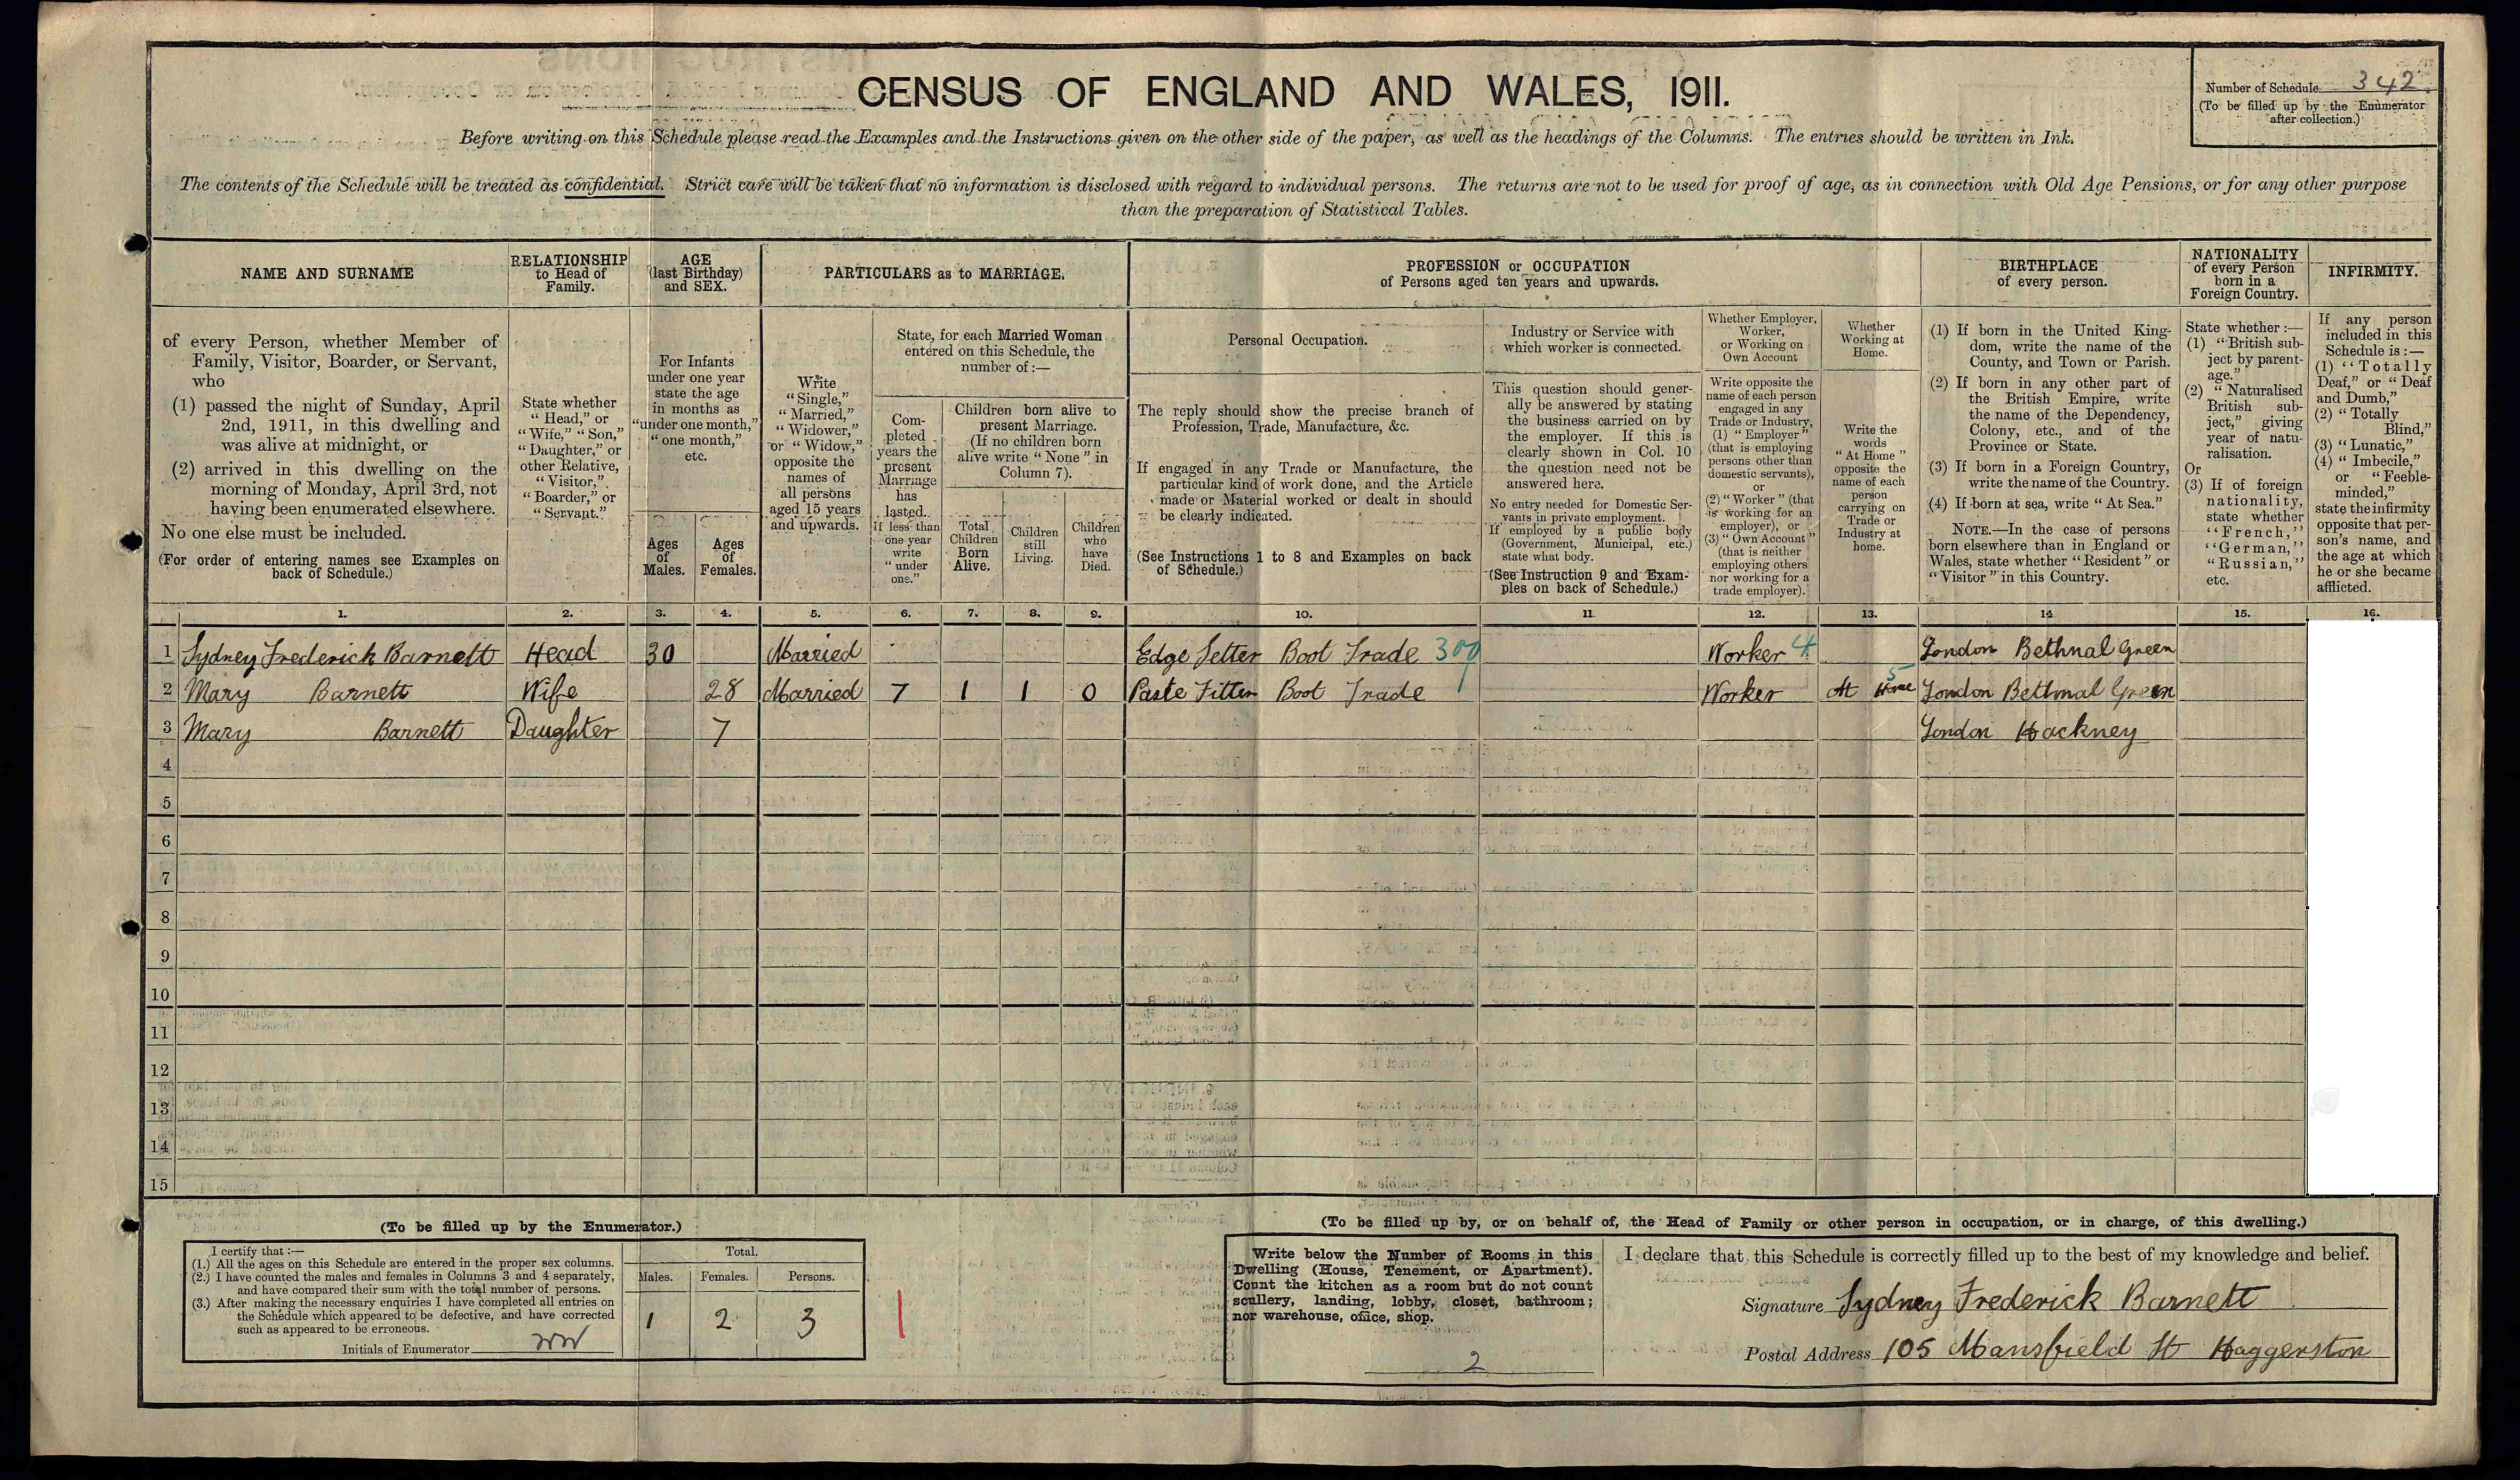 CENSUS OF ENGLAND AND WALES, 1911.
Number of Schedule 342.
(To be filled up by the Enumerator
after collection.)
Before writing on this Schedule please read the Examples and the Instructions given on the other side of the paper, as well as the headings of the Columns. The entries should be written in Ink.
The contents of the Schedule will be treated as confidential. Strict care will be taken that no information is disclosed with regard to individual persons. The returns are not to be used for proof of age, as in connection with Old Age Pensions, or for any other purpose
than the preparation of Statistical Tables.
NAME AND SURNAME
of every Person, whether Member of
Family, Visitor, Boarder, or Servant,
who
(1) passed the night of Sunday, April
2nd, 1911, in this dwelling and
was alive at midnight, or
(2) arrived in this dwelling on the
morning of Monday, April 3rd, not
having been enumerated elsewhere.
No one else must be included.
(For order of entering names see Examples on
back of Schedule.)
RELATIONSHIP
to Head of
Family.
State whether
"Head," or
"Wife," "Son,"
"Daughter," or
other Relative,
"Visitor,"
"Boarder," or
"Servant."
AGE
(last Birthday)
and SEX.
For Infants
under one year
state the age
in months as
"under one month,"
"one month,"
etc.
Ages
of
Males.
Ages
of
Females.
PARTICULARS as to MARRIAGE.
Write
"Single,"
"Married,"
"Widower,"
or "Widow,"
opposite the
names of
all persons
aged 15 years
and upwards.
State, for each Married Woman
entered on this Schedule, the
number of:—
Com-
pleted
years the
present
Marriage
has
lasted.
If less than
one year
write
"under
one."
Children born alive to
present Marriage.
(If no children born
alive write "None" in
Column 7).
Total
Children
Born
Alive.
Children
still
Living.
Children
who
have
Died.
PROFESSION or OCCUPATION
of Persons aged ten years and upwards.
Personal Occupation.
The reply should show the precise branch of
Profession, Trade, Manufacture, &c.
If engaged in any Trade or Manufacture, the
particular kind of work done, and the Article
made or Material worked or dealt in should
be clearly indicated.
(See Instructions 1 to 8 and Examples on back
of Schedule.)
Industry or Service with
which worker is connected.
This question should gener-
ally be answered by stating
the business carried on by
the employer. If this is
clearly shown in Col. 10
the question need not be
answered here.
No entry needed for Domestic Ser-
vants in private employment.
If employed by a public body
(Government, Municipal, etc.)
state what body.
(See Instruction 9 and Exam-
ples on back of Schedule.)
Whether Employer,
Worker,
or Working on
Own Account
Write opposite the
name of each person
engaged in any
Trade or Industry,
(1) "Employer"
(that is employing
persons other than
domestic servants),
or
(2) "Worker" (that
is working for an
employer), or
(3) "Own Account"
(that is neither
employing others
nor working for a
trade employer).
Whether
Working at
Home.
Write the
words
"At Home"
opposite the
name of each
person
carrying on
Trade or
Industry at
home.
BIRTHPLACE
of every person.
(1) If born in the United King-
dom, write the name of the
County, and Town or Parish.
(2) If born in any other part of
the British Empire, write
the name of the Dependency,
Colony, etc., and of the
Province or State.
(3) If born in a Foreign Country,
write the name of the Country.
(4) If born at sea, write "At Sea."
NOTE.—In the case of persons
born elsewhere than in England or
Wales, state whether "Resident" or
"Visitor" in this Country.
NATIONALITY
of every Person
born in a
Foreign Country.
State whether:—
(1) "British sub-
ject by parent-
age."
(2) "Naturalised
British sub-
ject," giving
year of natu-
ralisation.
Or
(3) If of foreign
nationality,
state whether
"French,"
"German,"
"Russian,"
etc.
INFIRMITY.
If any person
included in this
Schedule is:—
(1) "Totally
Deaf," or "Deaf
and Dumb,"
(2) "Totally
Blind,"
(3) "Lunatic,"
(4) "Imbecile,"
or "Feeble-
minded,"
state the infirmity
opposite that per-
son's name, and
the age at which
he or she became
afflicted.
1. 2. 3. 4. 5. 6. 7. 8. 9. 10. 11. 12. 13. 14. 15. 16.
1 Sydney Frederick Barnett Head 30 Married Edge Setter Boot Trade 300 Worker 4 London Bethnal Green
2 Mary Barnett Wife 28 Married 7 1 1 0 Paste Fitter Boot Trade 1 Worker At Home 5 London Bethnal Green
3 Mary Barnett Daughter 7 London Hackney
4
5
6
7
8
9
10
11
12
13
14
15
(To be filled up by the Enumerator.)
I certify that:—
(1.) All the ages on this Schedule are entered in the proper sex columns.
(2.) I have counted the males and females in Columns 3 and 4 separately,
and have compared their sum with the total number of persons.
(3.) After making the necessary enquiries I have completed all entries on
the Schedule which appeared to be defective, and have corrected
such as appeared to be erroneous.
Initials of Enumerator
Total.
Males. Females. Persons.
1 2 3
(To be filled up by, or on behalf of, the Head of Family or other person in occupation, or in charge, of this dwelling.)
Write below the Number of Rooms in this
Dwelling (House, Tenement, or Apartment).
Count the kitchen as a room but do not count
scullery, landing, lobby, closet, bathroom;
nor warehouse, office, shop.
2
I declare that this Schedule is correctly filled up to the best of my knowledge and belief.
Signature Sydney Frederick Barnett
Postal Address 105 Mansfield St Haggerston